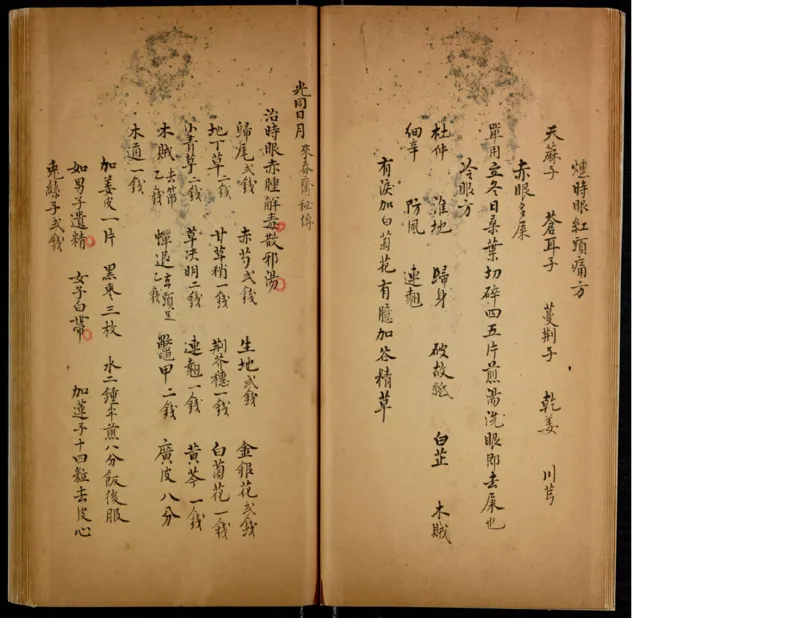 煙時眼紅頭痛方
天蔴子 蒼耳子 蔓荆子 乾姜 川芎
赤眼多屎
單用立冬日桑葉切碎四五片煎湯洗眼即去屎也
冷眼方
杜仲 淮地 歸身 破故紙 白芷 木賊
細辛 防風 連翹
有淚加白菊花有臆加谷精草
光同日月 來春齋秘傳
治時眼赤腫解毒散邪湯
歸尾弍錢 赤芍弍錢 生地弍錢 金銀花弍錢
地丁草二錢 甘草梢一錢 荆芥穗一錢 白菊花一錢
小青草二錢 草决明二錢 連翹一錢 黃芩一錢
木賊去節乙錢 蟬退去頭足乙錢 鱉甲二錢 廣皮八分
木通一錢
加姜皮一片 黑棗三枚 水二鍾半煎八分飯後服
如男子遺精 女子白帶 加蓮子十四粒去皮心
兎絲子弍錢